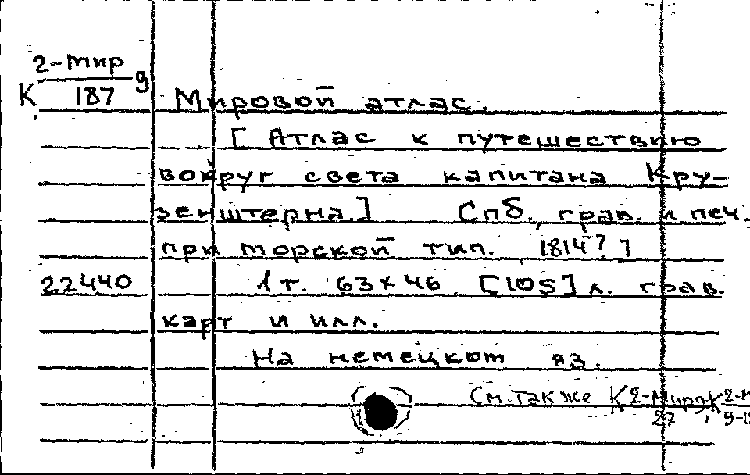 2-Мир 9
К 187 Мировой атлас.
[Атлас к путешествию
вокруг света капитана Кру-
зенштерна.] Спб, грав. и печ.
при морской тип. 1814?]
22440 1 т. 63×46 [105] л. грав.
карт и илл.
На немецком яз.
См. также К 2-Мир